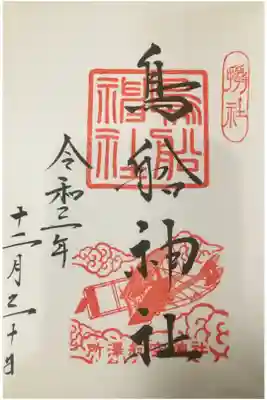 攝社
鳥船神社
鳥船神社
令和二年
十二月三十日